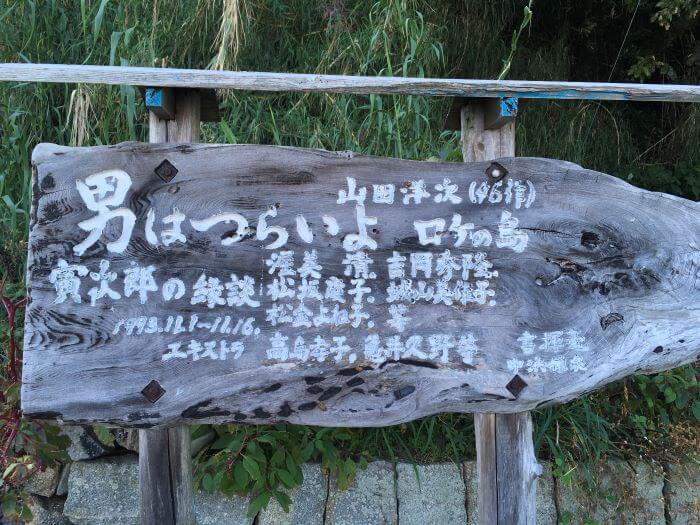 山田洋次(46作)
男はつらいよ ロケの島
寅次郎の縁談 渥美 清. 吉岡秀隆.
松坂慶子. 城山美佳子.
松金よね子. 等
1993.11.1~11.16.
エキストラ 高島幸子. 亀井久野等